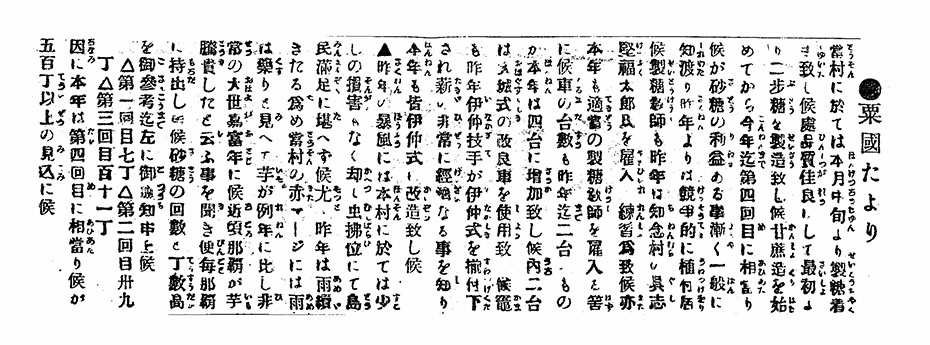 ●粟國だより
當村に於ては本月中旬より製糖着
手致し候處品質佳良にして最初よ
り二歩糖を製造致し候甘蔗造を始
めてから今年迄第四回目に相當り
候が砂糖の利益ある事漸く一般に
知渡り昨年よりは競爭的に植付居
候製糖教師も昨年は知念村の具志
堅福太郎氏を雇入れ練習爲致候亦
本年も適當の製糖教師を雇入る筈
に候車の台數も昨年迄二台のもの
が本年は四台に増加致し候内二台
は 城式の改良車を使用致 候竈
も昨年伊仲技手が伊仲式を据付下
され薪の非常に經濟なる事を知り
本年も皆伊仲式に改造致し候
▲昨年の暴風には本村に於ては少
しの損害もなく却し虫拂位にて島
民滿足に堪へず候尤も昨年は雨續
きたる爲め當村の赤マージには雨
は藥りと見へて芋が例年に比し非
常の大世嘉富年に候近頃那覇が芋
騰貴したと云ふ事を聞き便毎那覇
に持出し居候砂糖の回數と丁數爲
を御參考迄左に御通知申上候
△第一回目七丁△第二回目卅九
丁△第三回目百十一丁
因に本年は第四回目に相當り候が
五百丁以上の見込に候